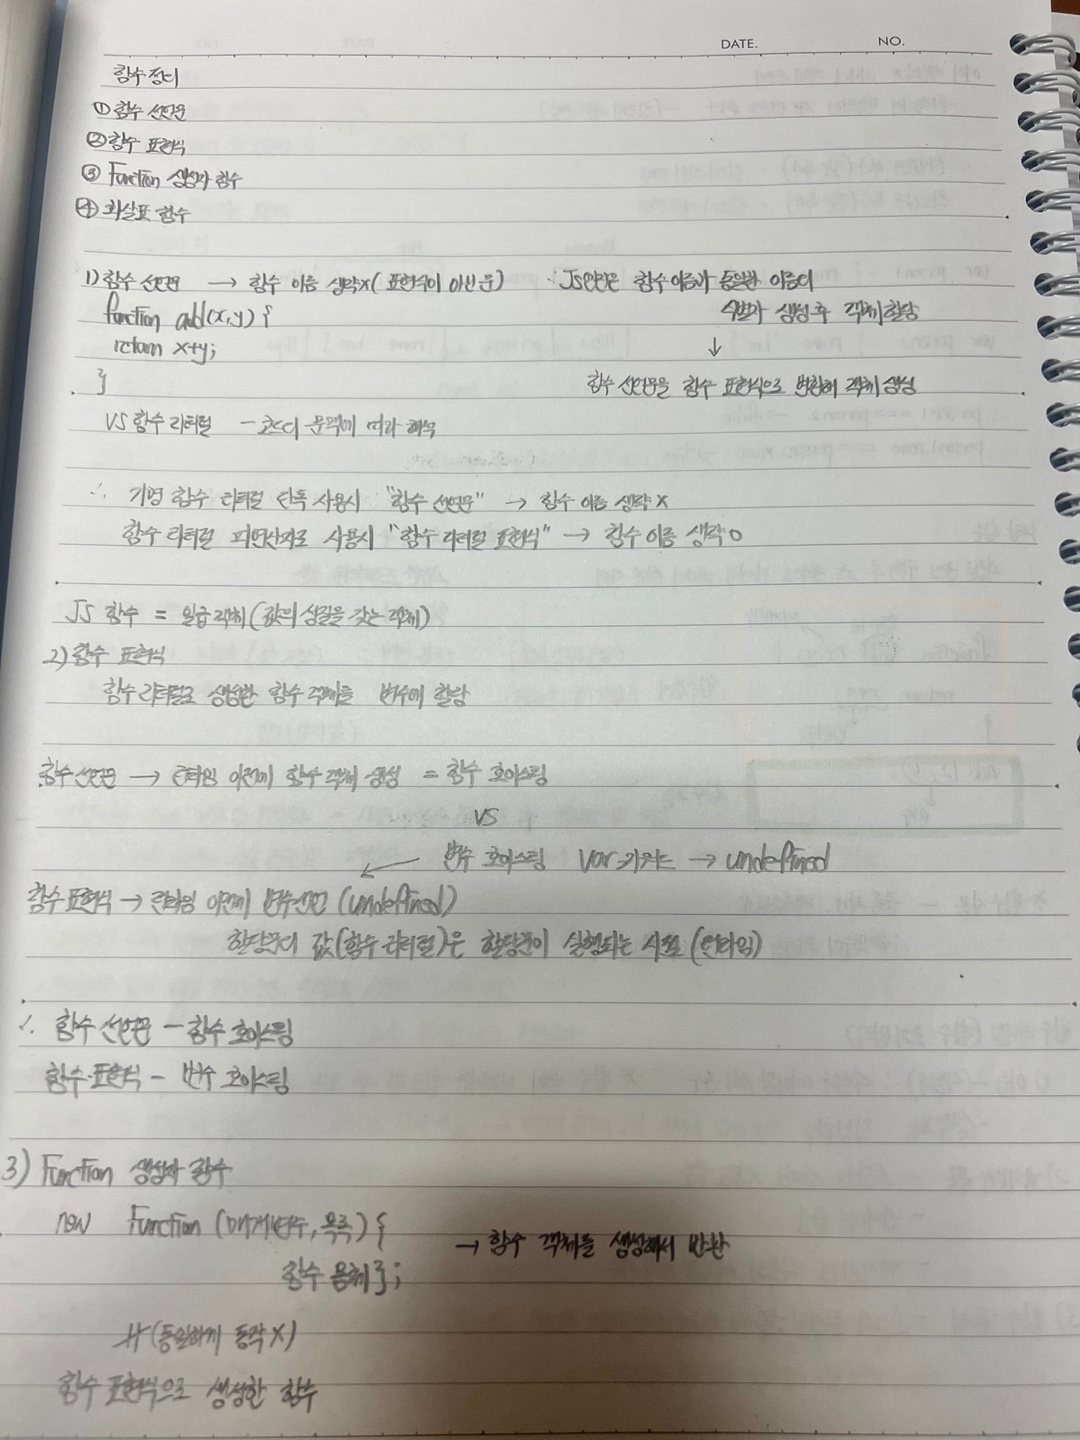 DATE. NO.
함수 정의
① 함수 선언문
② 함수 표현식
③ Function 생성자 함수
④ 화살표 함수
1) 함수 선언문 → 함수 이름 생략X (표현식이 아닌 문) ∵ JS엔진은 함수이름과 동일한 이름의
function add(x,y) { 식별자 생성 후 객체 할당
return x+y; ↓
} 함수 선언문을 함수 표현식으로 변환해 객체 생성
VS 함수 리터럴 - 코드의 문맥에 따라 해석
∴ 기명 함수 리터럴 단독 사용시 "함수 선언문" → 함수 이름 생략 X
함수 리터럴 피연산자로 사용시 "함수 리터럴 표현식" → 함수 이름 생략 O
JS 함수 = 일급 객체 (값의 성질을 갖는 객체)
2) 함수 표현식
함수 리터럴로 생성한 함수 객체를 변수에 할당
함수 선언문 → 런타임 이전에 함수 객체 생성 = 함수 호이스팅
VS
변수 호이스팅 var 키워드 → undefined
함수 표현식 → 런타임 이전에 변수선언 (undefined)
할당문의 값(함수 리터럴)은 할당문이 실행되는 시점 (런타임)
∴ 함수 선언문 - 함수 호이스팅
함수 표현식 - 변수 호이스팅
3) Function 생성자 함수
new Function (매개변수, 목록) { → 함수 객체를 생성해서 반환
함수 몸체 };
(동일하게 동작 X)
함수 표현식으로 생성한 함수